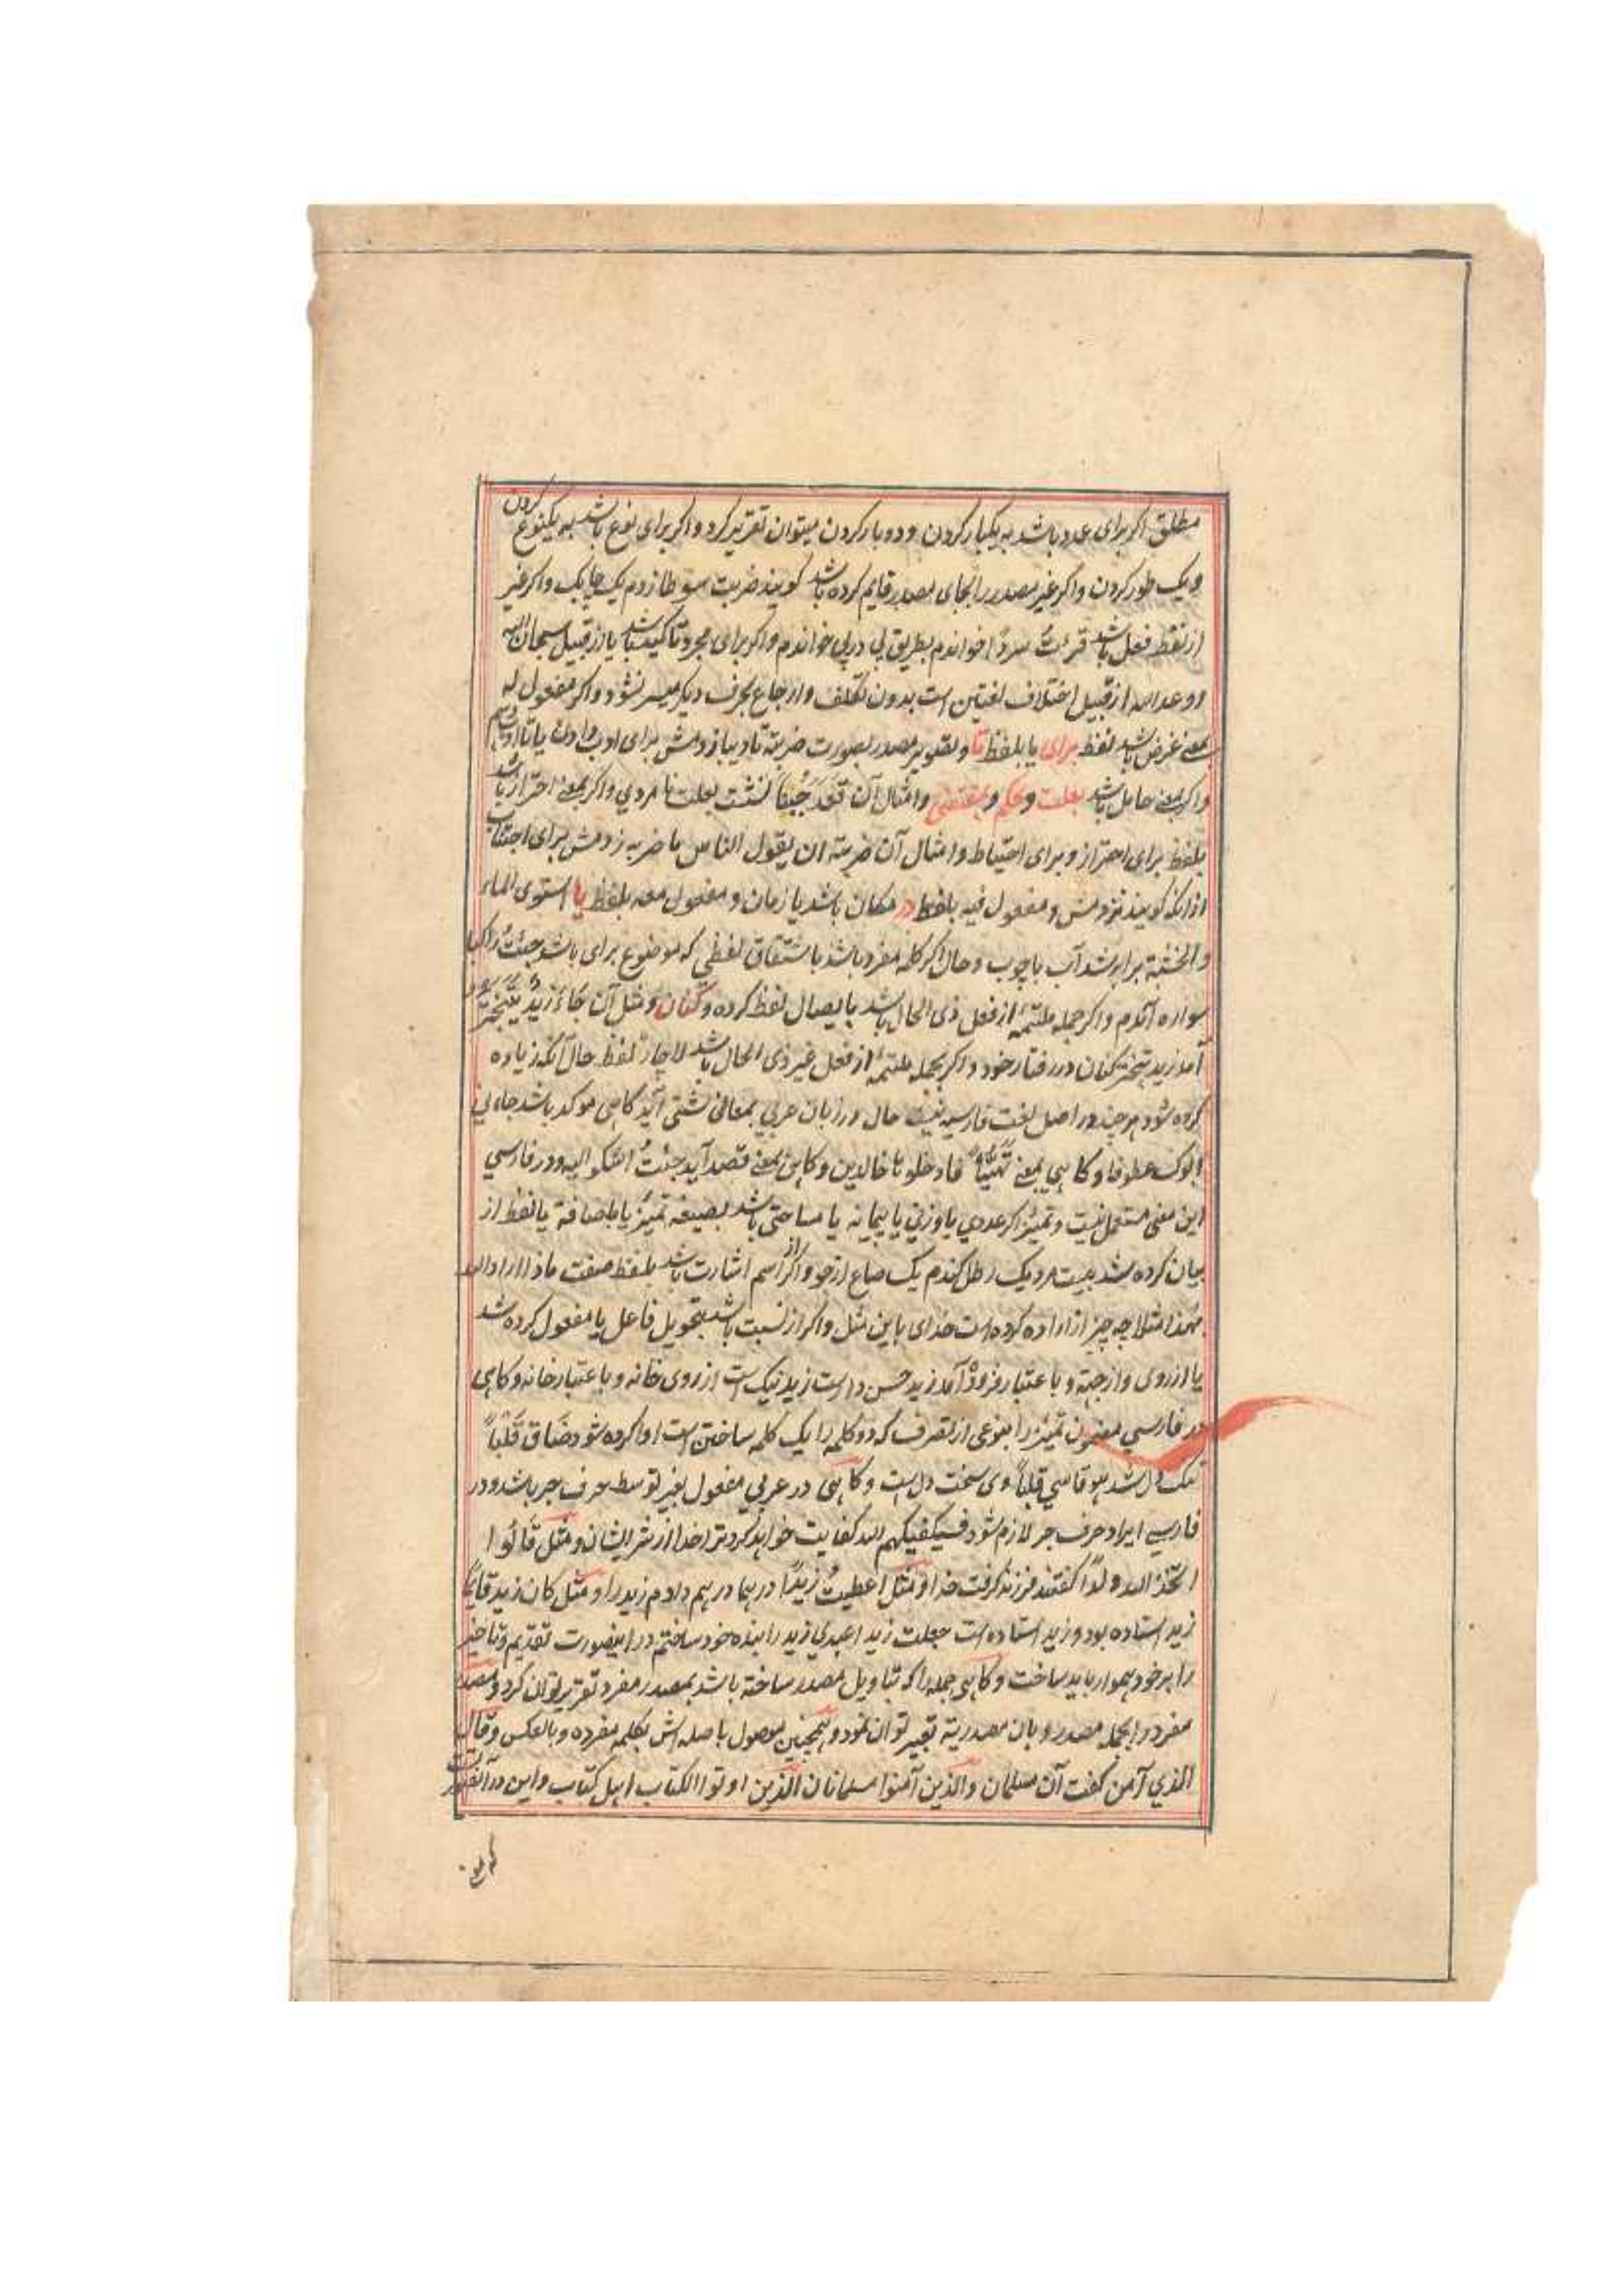 مطلق اکر برای عدد باشد به یکبار کردن و دو بار کردن میتوان تقریر کرد و اکر برای نوع باشد به یکنوع کردن
و یک طور کردن و اکر غیر مصدر را بجای مصدر قایم کرده باشد کویند ضربت سوطا زدم یک چابک و اکر غیر
از لفظ فعل باشد قرئتُ سردًا خواندم بطریق پی درپی خواندم و اکر برای مجرد تاکید باشد یا از قبیل سبحان الله
و وعد الله از قبیل اختلاف لغتین است بدون تکلف و ارجاع بحرف دیکر میسر نشود و اکر مفعول له
بمعنے غرض باشد لفظ برای یا بلفظ تا و تصویر مصدر بصورت ضربته تادیبا زدمش برای ادب دادن یا تا ادب دهم
و اکر بمعنے حامل باشد بعلت و بحکم و بمقتضی و امثال آن قَعَدَ جُبنًا نشست بعلت نامردی و اکر بمعنے احتراز باشد
بلفظ برای احتراز و برای احتیاط و امثال آن ضربته ان یقول الناس ما ضربه زدمش برای اجتناب
ازانکه کویند نزدمش و مفعول فیه بلفظ در مکان باشد یا زمان و مفعول معه بلفظ با استوی الماء
و الخشبة برابر شد آب با چوب و حال اکر کلمه مفرد باشد باشتقاق لفظی که موضوع برای باشد جئتُ راکبا
سواره آمدم و اکر جمله ملتئمه از فعل ذی الحال باشد بایصال لفظ کرده و کنان و مثل آن جَاءَ زیدٌ یتبختر
آمد زید تبختر کنان در رفتار خود و اکر بجمله ملتئمه از فعل غیر ذی الحال باشد لاچار لفظ حال آنکه زیاده
کرده شود هر چند در اصل لغت فارسیه نیست حال در زبان عربی بمعانی شتی آید کاهی موکد باشد جاءنی
ابوک عطوفا و کاهی بمعنے تَهَیُّأً فادخلوها خالدین و کاهی بمعنے قصد آید جئتُ اشکو الیه و در فارسی
این معنی مستعمل نیست و تمیئز اکر عددی یا وزنی یا پیمانه یا مساحتی باشد بصیغه تمیئز یا باضافة یا لفظ از
بیان کرده شد بیست مرد یک رطل کندم یک صاع از جو و اکر از اسم اشارت باشد بلفظ صفت ماذا اراد الله
بهذا مثلا چه چیز را اراده کرده است خدای باین مثل و اکر از نسبت باشد بتحویل فاعل یا مفعول کرده شد
یا از روی و از جهة و باعتبار فرود آمد زید حسن دارست زید نیک است از روی خانه و باعتبار خانه و کاهی
در فارسی مضمون تمیئز را بنوعی از تصرف که دو کلمه را یک کلمه ساختن است ادا کرده شود ضَاقَ قَلبًا
تنک دل شد هو قاسی قلبًا وی سخت دل است و کاهی در عربی مفعول بغیر توسط حرف جر باشد و در
فارسی ایراد حرف جر لازم شود فسیکفیکهم الله کفایت خواهد کرد ترا خدا از شر ایشان و مثل قَالُوا
اتخذ الله ولدًا کفتند فرزند کرفت خدا و مثل اعطیتُ زیدًا درهما درهم دادم زید را و مثل کان زید قایمًا
زید استاده بود و زید استاده است جعلت زیدا عبدی زید را بنده خود ساختم در اینصورت تقدیم و تاخیر
را بر خود هموار باید ساخت و کاهی جمله را که بتاویل مصدر ساخته باشد بمصدر مفرد تقریر توان کرد و مصدر
مفرد را بجمله مصدر و بان مصدریة تعبیر توان نمود و همچنین موصول با صله اش بکلمه مفرده و بالعکس و قال
الذی آمن کفت آن مسلمان و الذین آمنوا مسلمانان الذین اوتوا الکتاب اهل کتاب و این در آنصورت